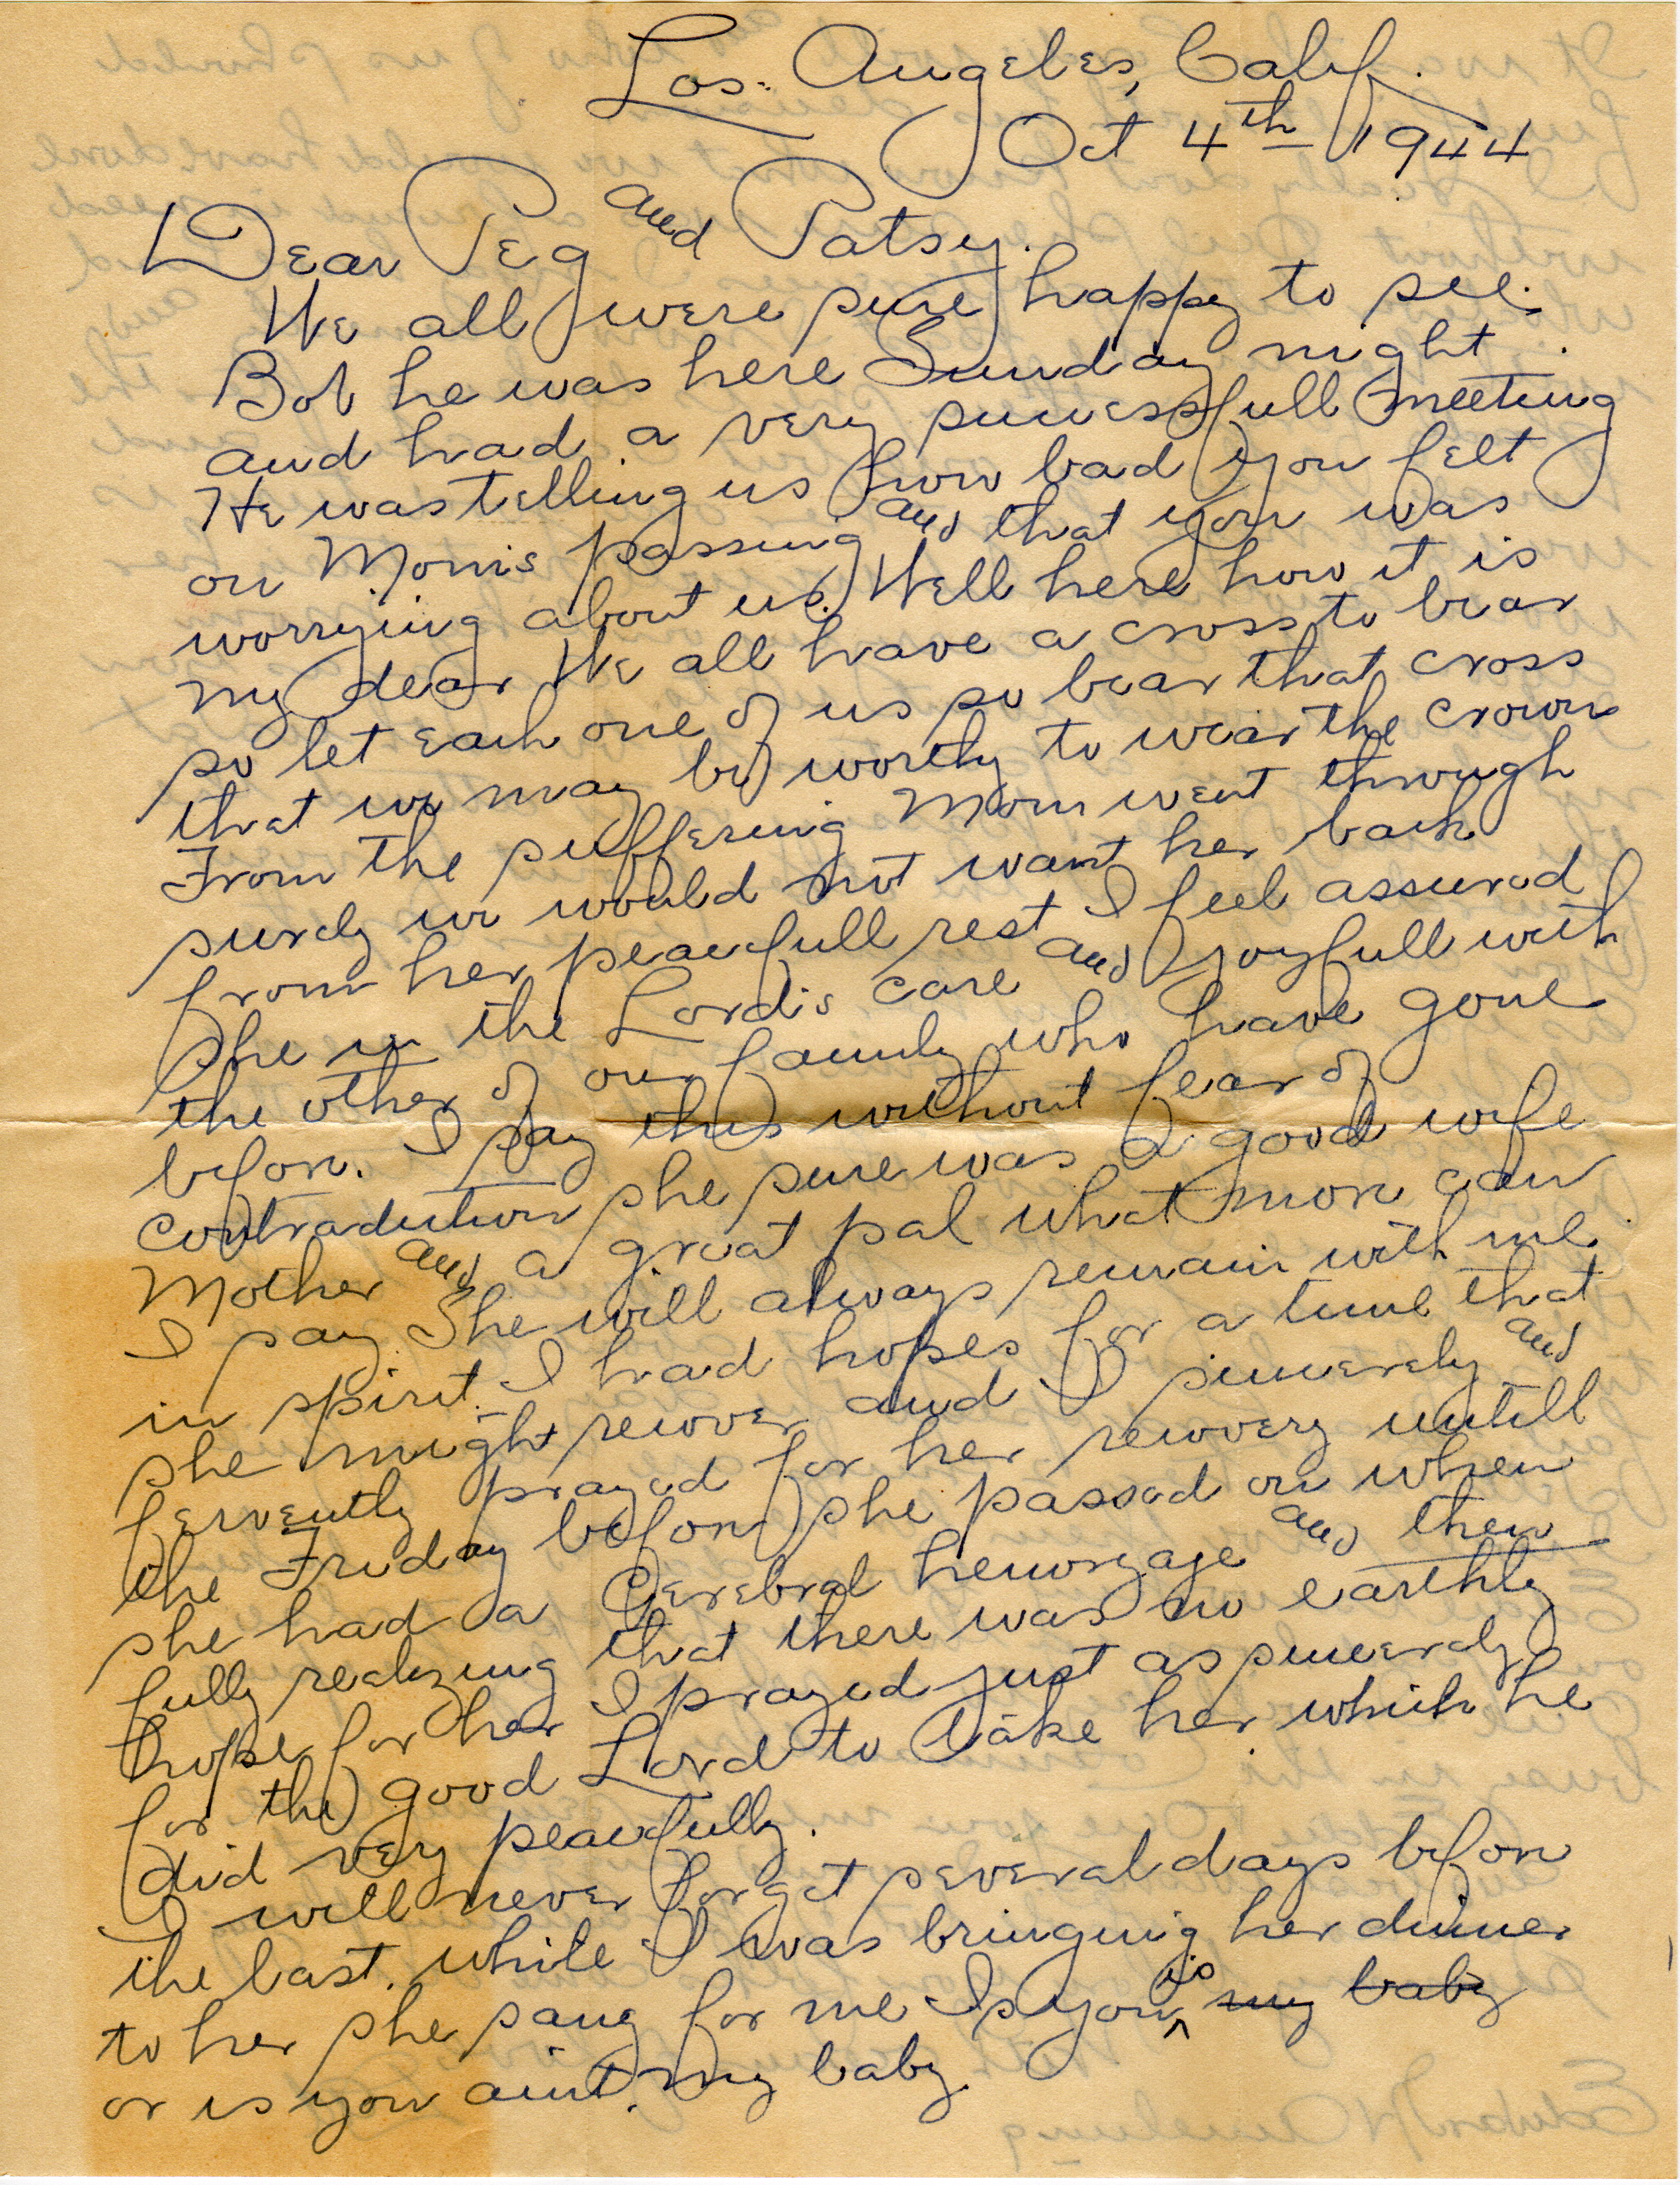 Los. Angeles, Calif.
Oct 4th 1944
Dear Peg and Patsy.
We all were sure happy to see.
Bob he was here Sunday night.
and had a very sucessfull meeting
He was telling us how bad you felt
on Mom's passing and that you was
worrying about us. Well here how it is
my dear We all have a cross to bear
so let each one of us so bear that cross
that we may be worthy to wear the crown
From the suffering Mom went through
surely we would not want her back
from her peacefull rest I feel assured
She is the Lord's care and joyfull with
the other of our family who have gone
before. I say this without fear of
contradiction she sure was a good wife
Mother and a great pal what more can
I say She will always remain with me.
in spirit. I had hopes for a time that
she might recover and I sincerely and
fervently prayed for her recovery untill
the Friday before she passed on when
she had a Cerebral hemorzage and then
fully realizing that there was no earthly
hope for her I prayed just as sincerely
for the good Lord to take her which he
did very peacefully.
I will never forget several days before
the last. while I was bringing her dinner
to her she sang for me Is you is my baby
or is you aint my baby.